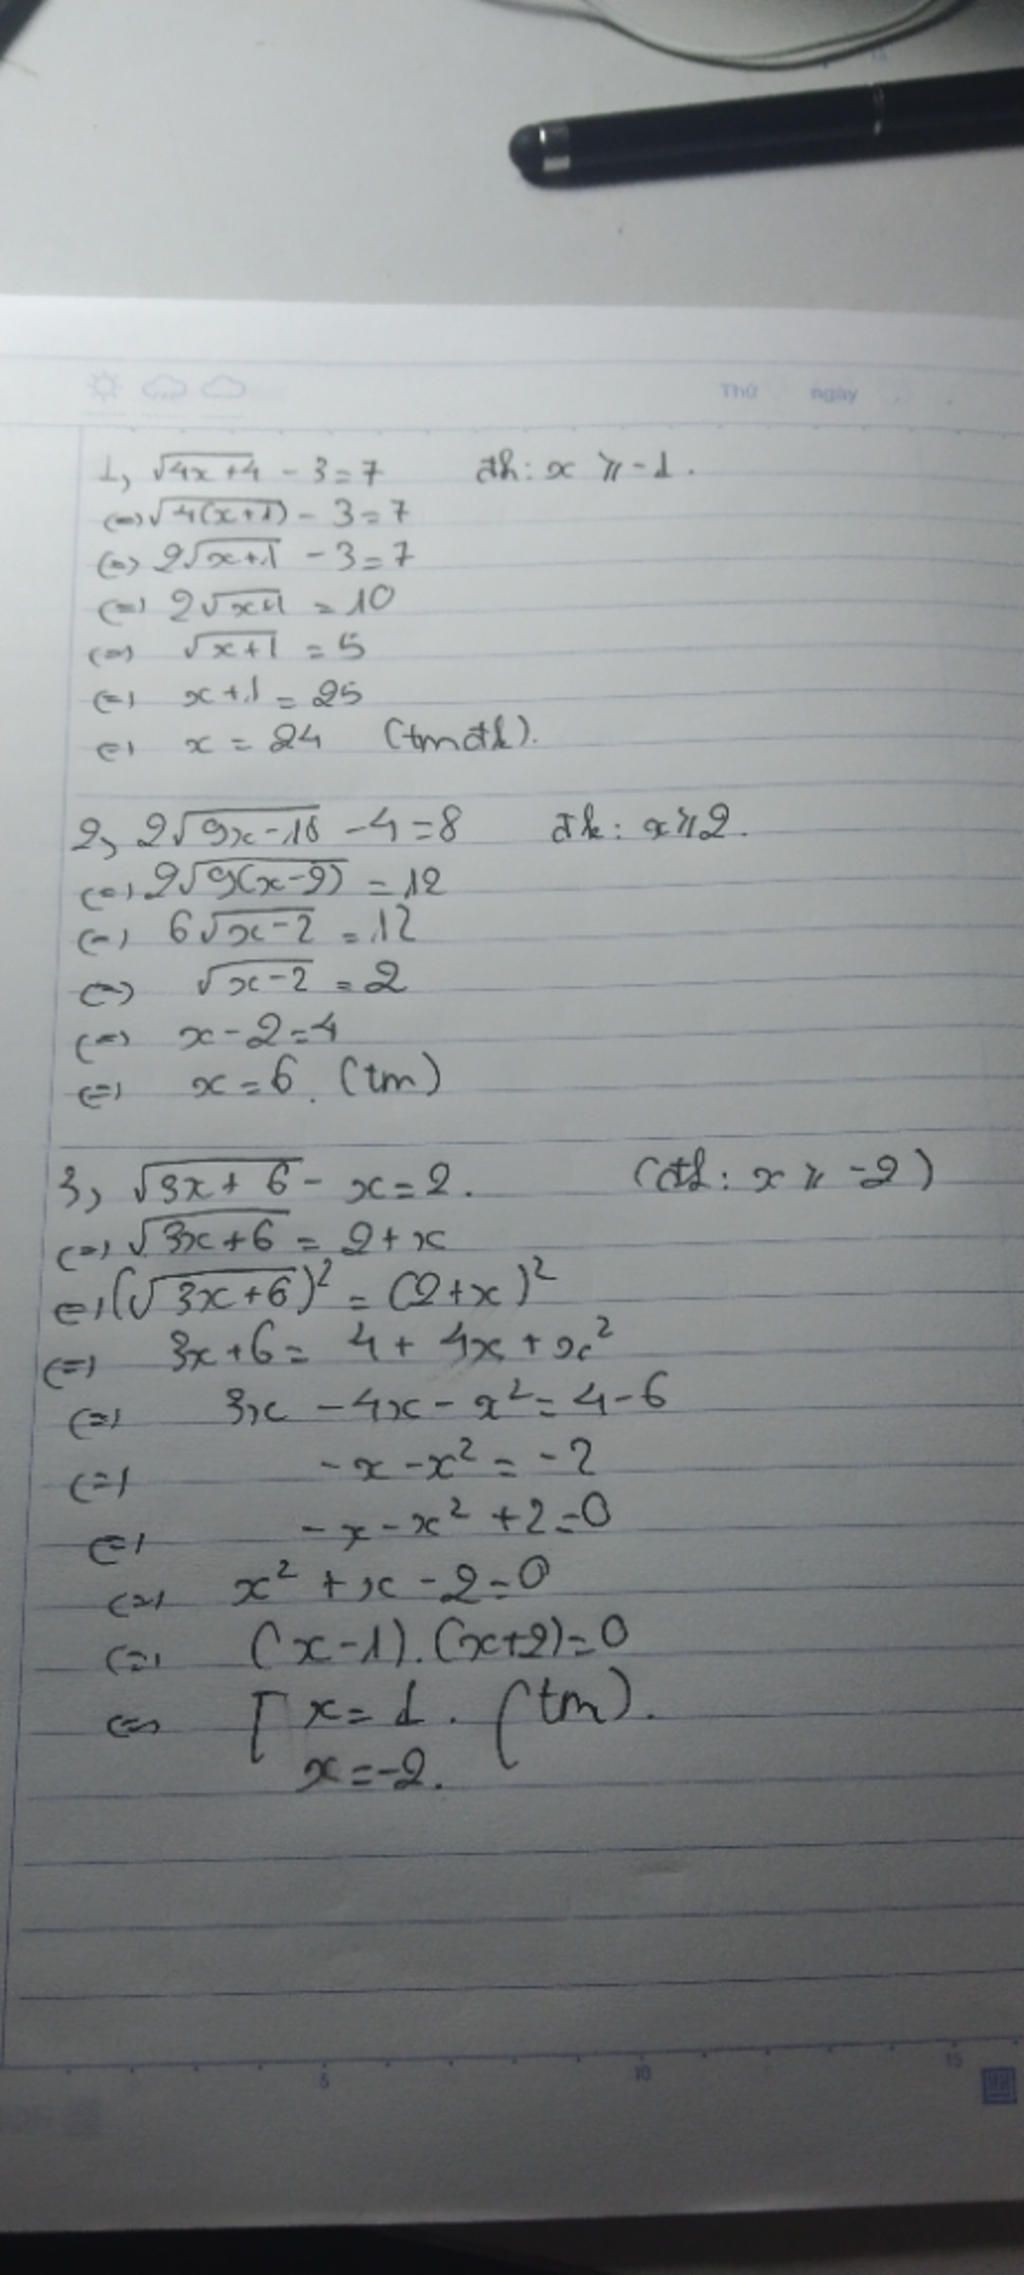 Thứ ngày
1, √(4x+4) - 3 = 7 đk: x ⩾ -1.
(=) √(4(x+1)) - 3 = 7
(=) 2√(x+1) - 3 = 7
(=) 2√(x+1) = 10
(=) √(x+1) = 5
(=) x+1 = 25
(=) x = 24 (tmđk).
2, 2√(9x-18) - 4 = 8 đk: x ⩾ 2.
(=) 2√(9(x-2)) = 12
(=) 6√(x-2) = 12
(=) √(x-2) = 2
(=) x - 2 = 4
(=) x = 6. (tm)
3, √(3x+6) - x = 2. (đk: x ⩾ -2)
(=) √(3x+6) = 2 + x
(=) (√(3x+6))² = (2+x)²
(=) 3x+6 = 4 + 4x + x²
(=) 3x - 4x - x² = 4 - 6
(=) -x - x² = -2
(=) -x - x² + 2 = 0
(=) x² + x - 2 = 0
(=) (x-1).(x+2) = 0
(=) [ x = 1. (tm).
x = -2.
5 10 15